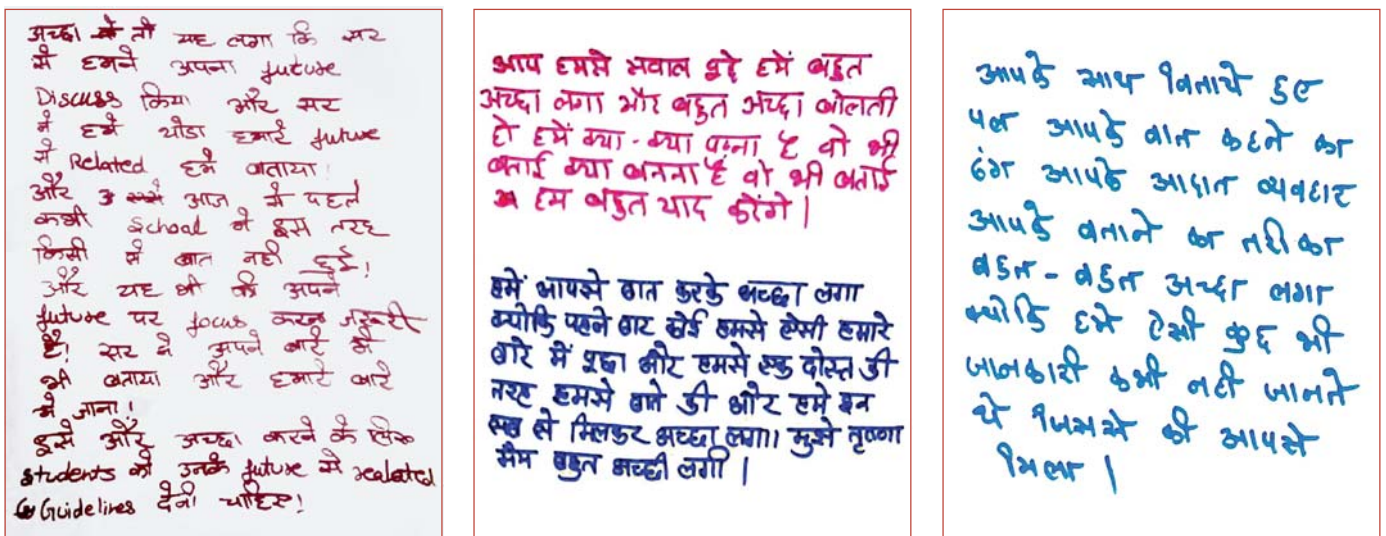 अच्छा तो यह लगा कि सर
से हमने अपना future
Discuss किया और सर
ने हमे थोडा हमारे future
से Related हमे बताया!
और आज से पहले
कभी School मे इस तरह
किसी से बात नही हुई!
और यह भी की अपने
future पर focus करना जरूरी
है! सर ने अपने बारे मे
भी बताया और हमारे बारे
मे जाना!
इसे और अच्छा करने के लिए
students को उनके future से realated
Guidelines देनी चाहिए!
आप हमसे सवाल पूछे हमें बहुत
अच्छा लगा और बहुत अच्छा बोलती
हो हमें क्या - क्या करना है वो भी
बताई क्या बनना है वो भी बताई
हम बहुत याद करेंगे |
हमें आपसे बात करके अच्छा लगा
क्योकि पहले बार कोई हमसे ऐसी हमारे
बारे में पूछा और हमसे एक दोस्त की
तरह हमसे बाते की और हमे इन
सब से मिलकर अच्छा लगा। मुझे तृष्णा
मैम बहुत अच्छी लगी |
आपके साथ बिताये हुए
पल आपके बात कहने का
ढंग आपके आदात व्यवहार
आपके बताने का तरीका
बहुत - बहुत अच्छा लगा
क्योकि हमे ऐसी कुछ भी
जानकारी कभी नही जानते
थे जिससे की आपसे
मिला |